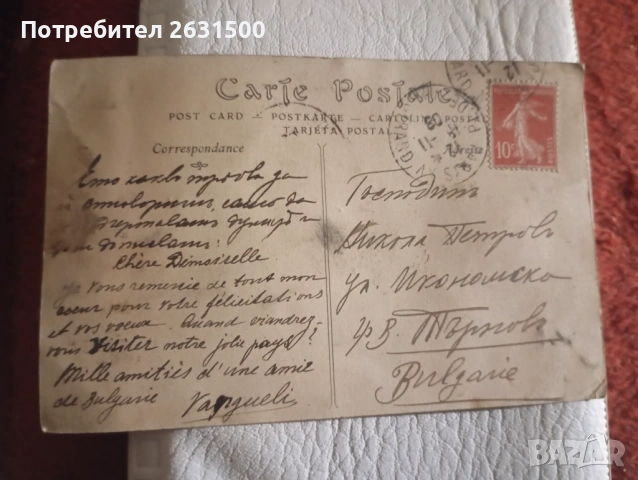 Потребител 2631500
Carte Postale
POST CARD — POSTKARTE — CARTOLINA POSTALE
TARJETA POSTAL
Correspondance
Ето какво трѣбва да
отговоришъ, само да
Chère Demoiselle
Je vous remercie de tout mon
coeur pour votre félicitations
et vos voeux. Quand viendrez-
vous visiter notre jolie pays?
Mille amitiés d'une amie
de Bulgarie
Господинъ
Никола Петровъ
ул. Икономска
гр В. Търновъ
Bulgarie
10c
BAZAR